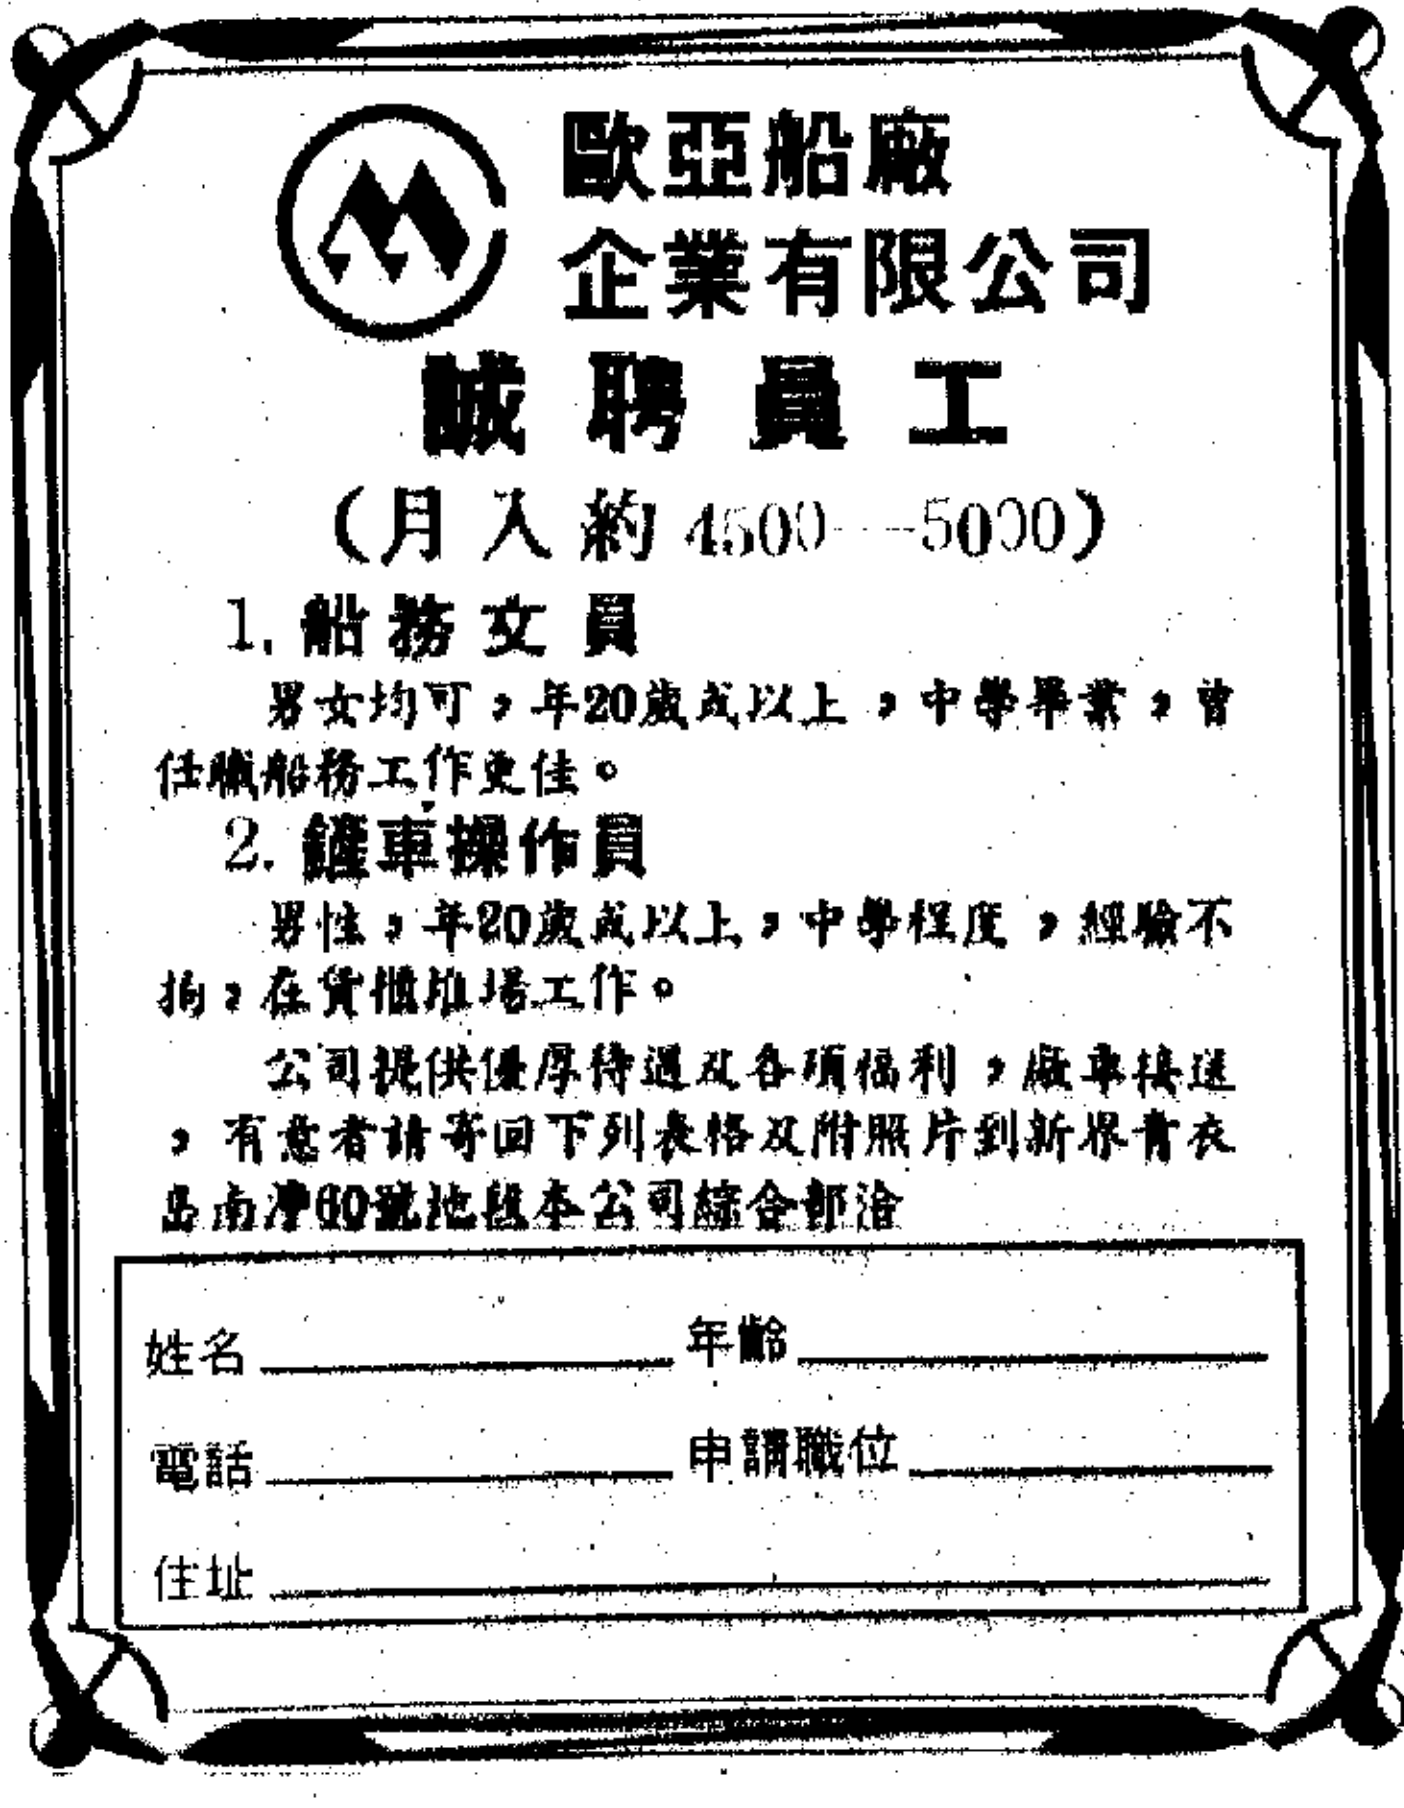 歐亞船廠
企業有限公司
誠聘員工
(月入約4500——5000)
1.船務文員
男女均可,年20歲或以上,中學畢業,曾
任職船務工作更佳。
2.鏟車操作員
男性,年20歲或以上,中學程度,經驗不
拘,在貨櫃堆場工作。
公司提供優厚待遇及各項福利,廠車接送
,有意者請寄回下列表格及附照片到新界青衣
島南灣60號地段本公司綜合部洽
姓名 年齡
電話 申請職位
住址